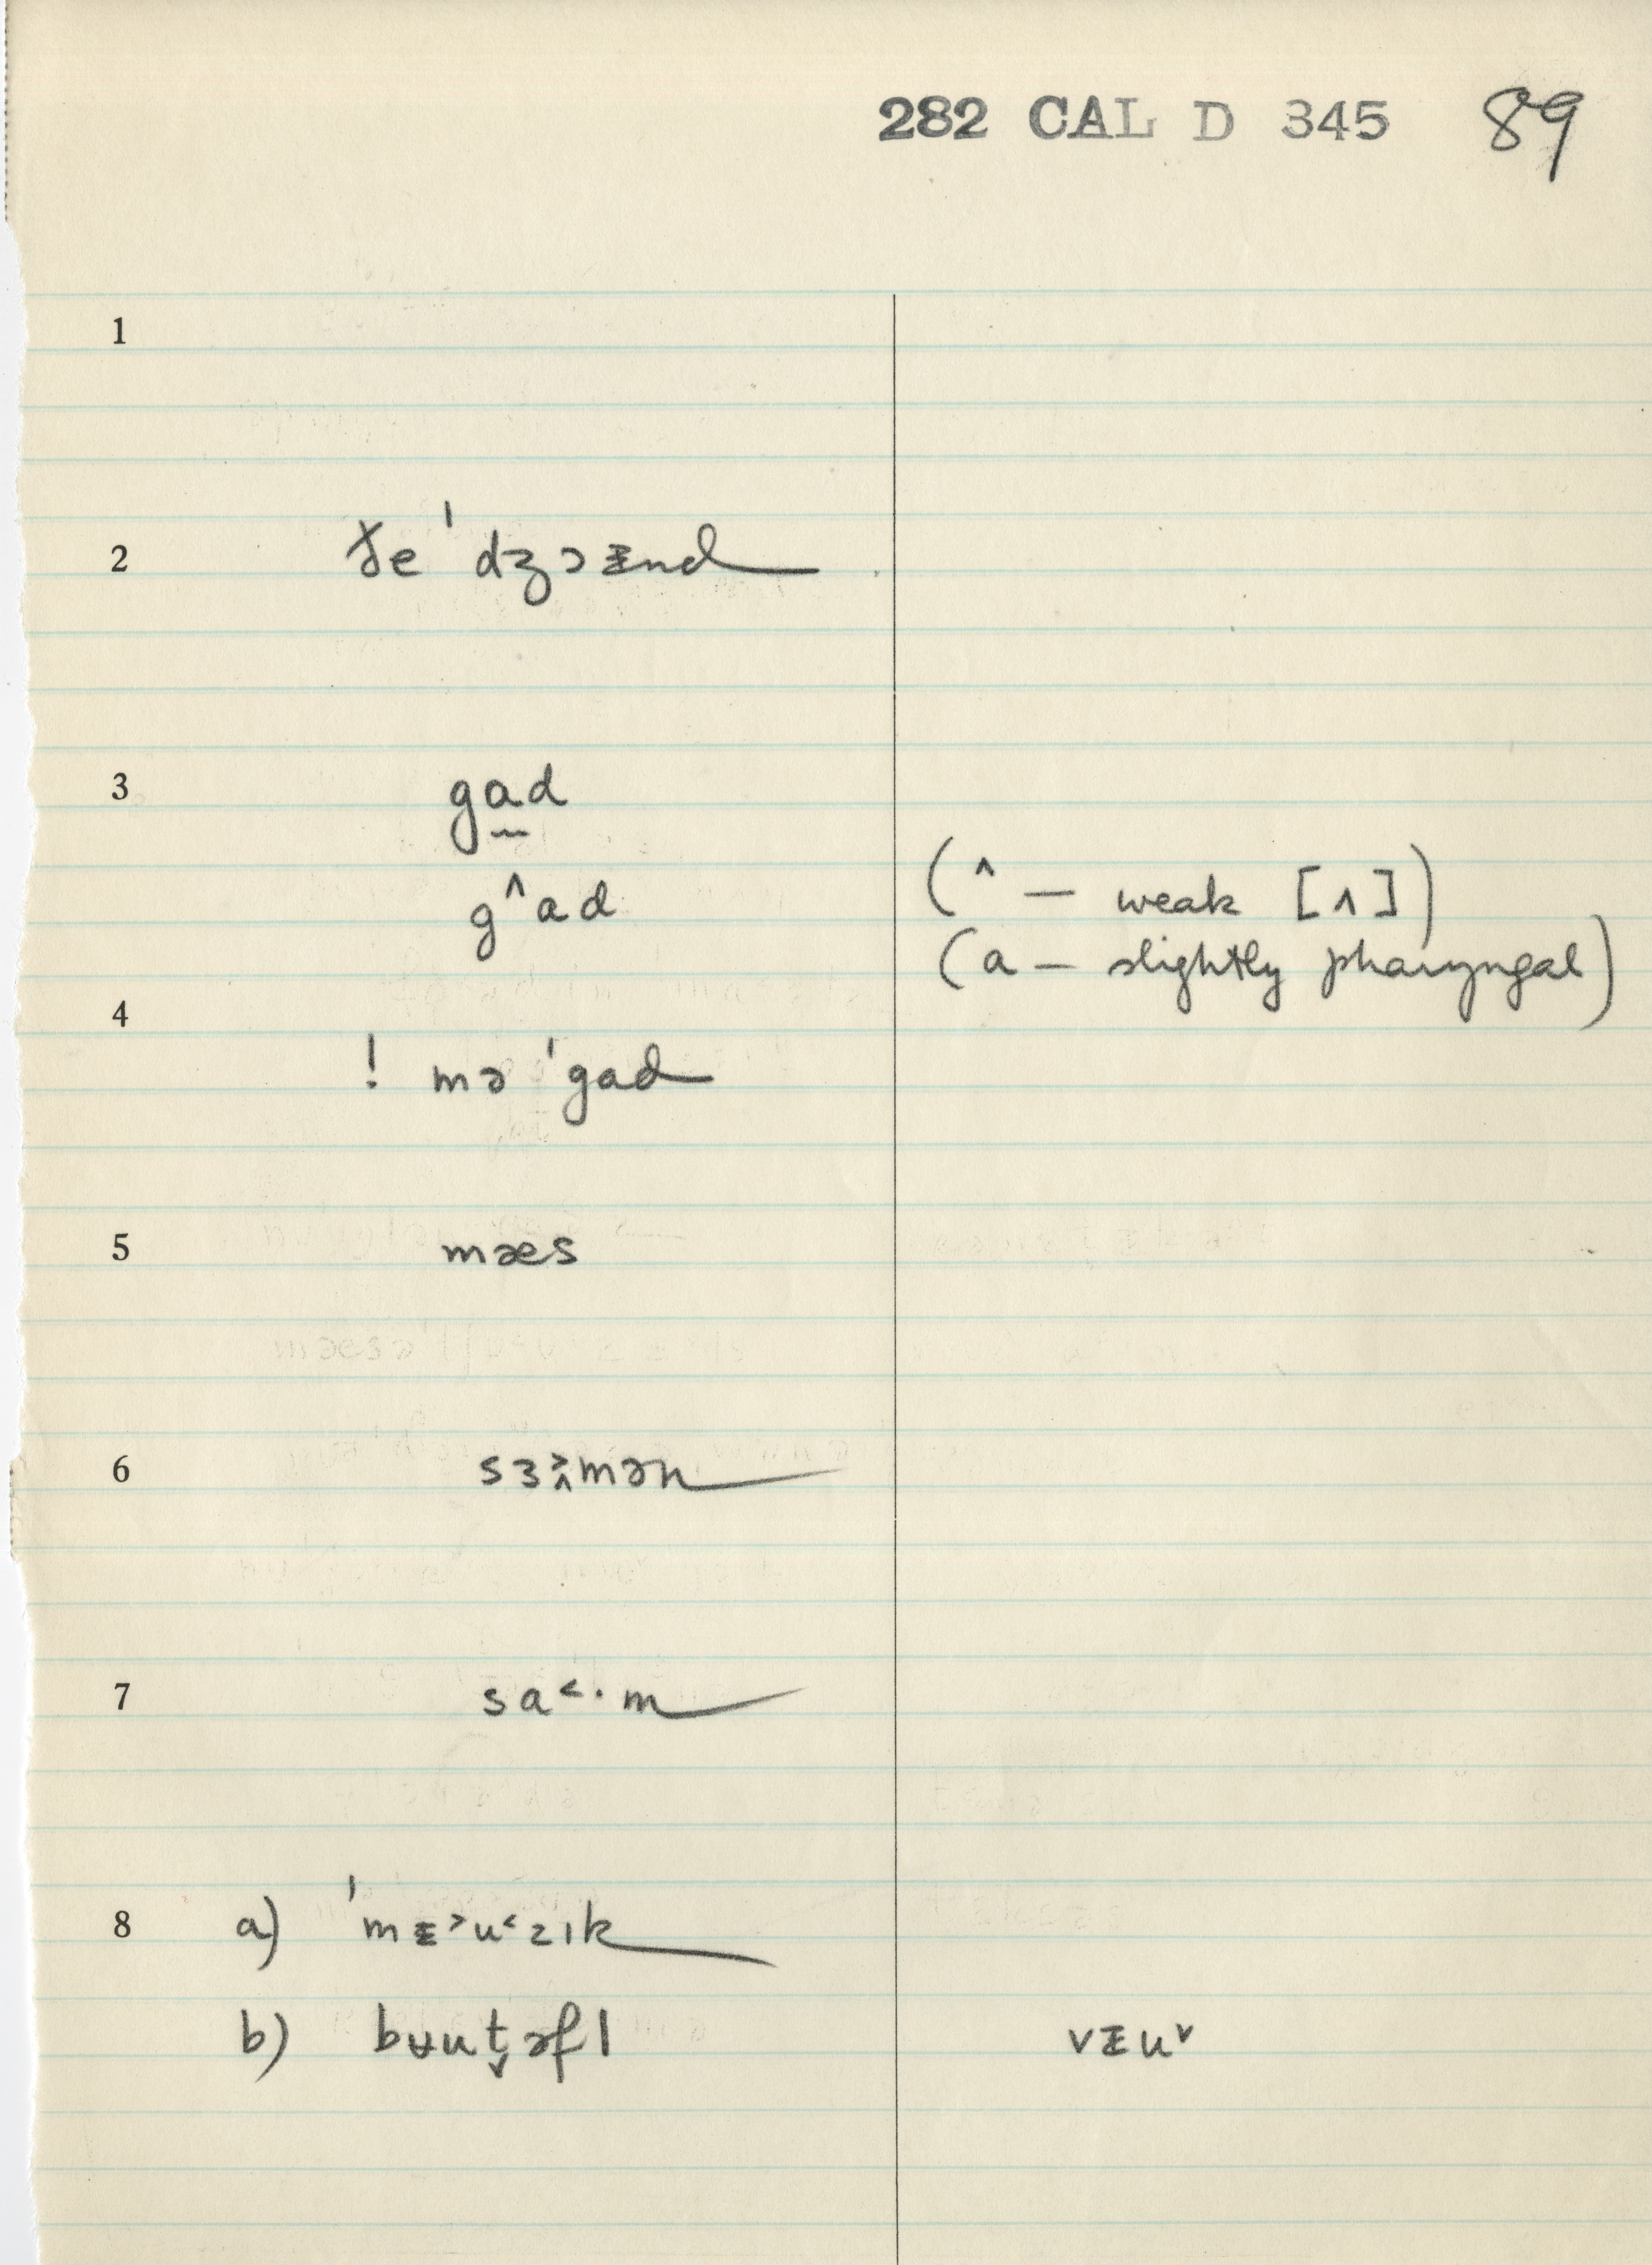 282 CAL D 345 89
1
2 ðe ˈdʒɔᵻnd
3 ga̰d
g^ad (^ — weak [ʌ])
(a — slightly pharyngal)
4
! mə ˈgad
5 mæs
6 sɜ˃̭mən
7 sa˂·m
8 a) ˈmᵻ˃u˂zık
b) bʉut̬əfl vᵻuˇ